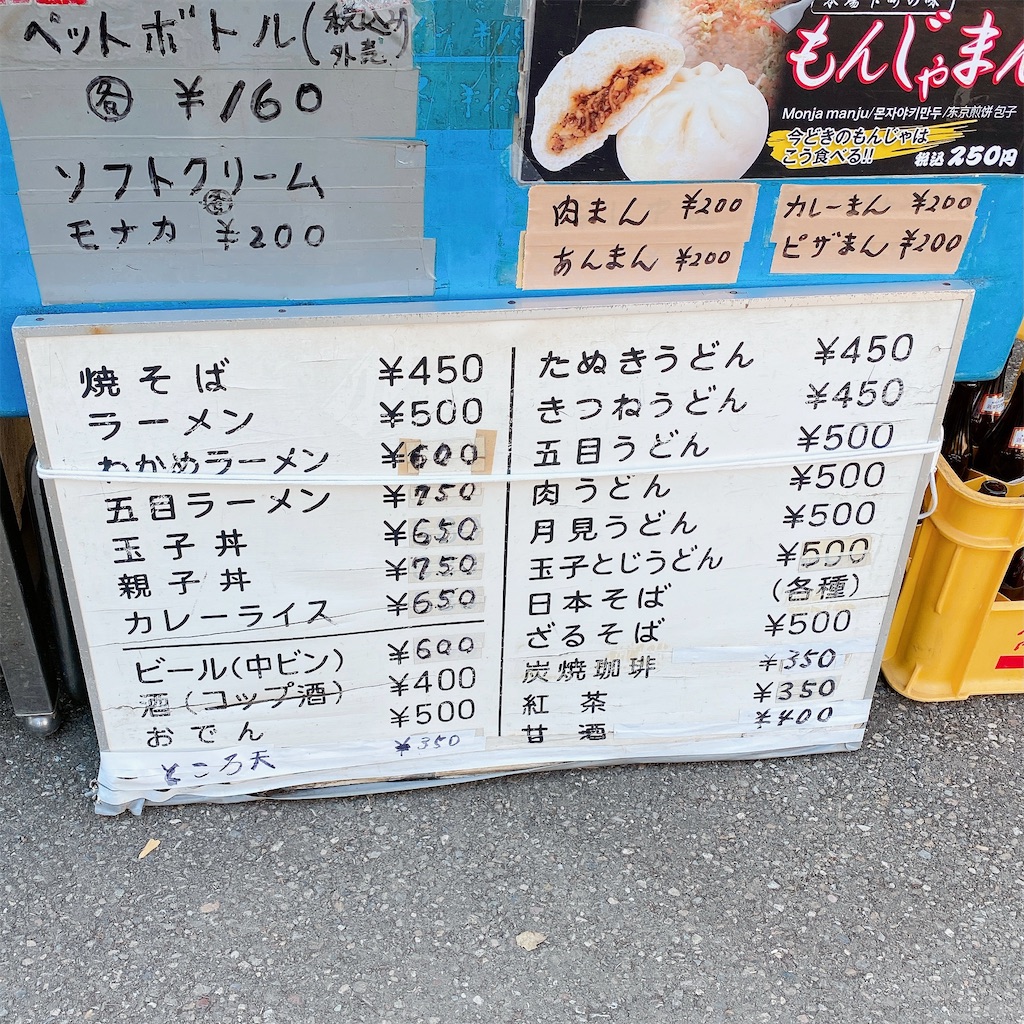 ペットボトル(税込み
外売)
各 ¥160
ソフトクリーム
モナカ 各 ¥200
もんじゃまん
Monja manju/몬자야키만두/东京煎饼包子
今どきのもんじゃは
こう食べる!! 税込250円
肉まん ¥200
あんまん ¥200
カレーまん ¥200
ピザまん ¥200
焼そば ¥450
ラーメン ¥500
わかめラーメン ¥600
五目ラーメン ¥750
玉子丼 ¥650
親子丼 ¥750
カレーライス ¥650
ビール(中ビン) ¥600
酒(コップ酒) ¥400
おでん ¥500
ところ天 ¥350
たぬきうどん ¥450
きつねうどん ¥450
五目うどん ¥500
肉うどん ¥500
月見うどん ¥500
玉子とじうどん ¥500
日本そば (各種)
ざるそば ¥500
炭焼珈琲 ¥350
紅茶 ¥350
甘酒 ¥400